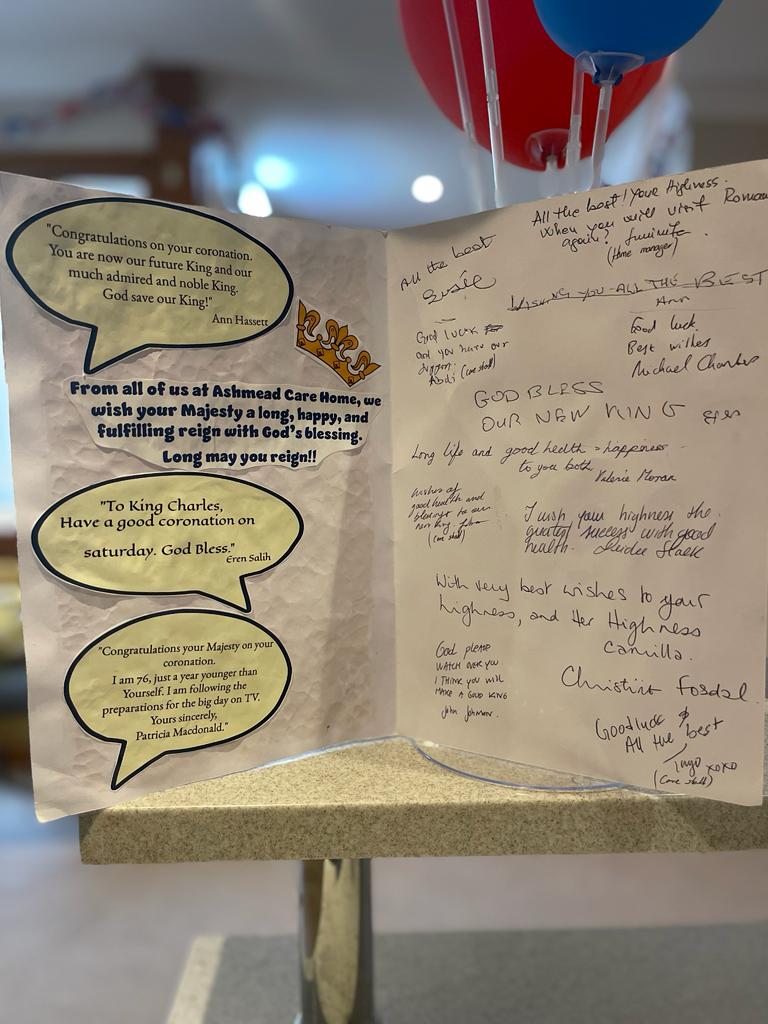 "Congratulations on your coronation.
You are now our future King and our
much admired and noble King.
God save our King!"
Ann Hassett
From all of us at Ashmead Care Home, we
wish your Majesty a long, happy, and
fulfilling reign with God's blessing.
Long may you reign!!
"To King Charles,
Have a good coronation on
saturday. God Bless."
Eren Salih
"Congratulations your Majesty on your
coronation.
I am 76, just a year younger than
Yourself. I am following the
preparations for the big day on TV.
Yours sincerely,
Patricia Macdonald."
All the best! Your Highness.
When you will visit Romania
again?
(Home manager)
All the best
Susie
WISHING YOU ALL THE BEST
Ann
Good luck
and you have our
(care staff)
Good luck.
Best wishes
Michael Charles
GOD BLESS
OUR NEW KING
Long life and good health + happiness
to you both
Valerie Moran
wishes of
good health and
blessings to our
new King.
(care staff)
I wish your highness the
greatest success with good
health. Deirdre Slack
With very best wishes to your
highness, and Her Highness
Camilla.
Christine Fosdal
God please
WATCH OVER YOU
I THINK YOU WILL
MAKE A GOOD KING
John Johnson.
Good luck &
All the best
Inga xoxo
(Care staff)